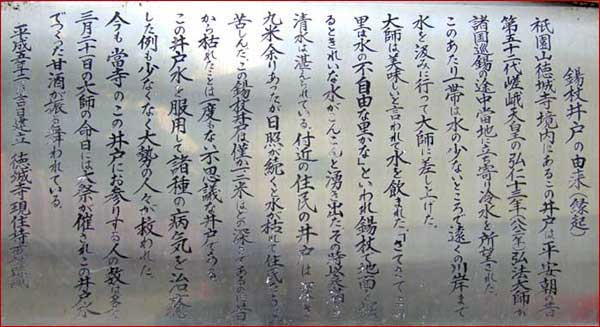 錫杖井戸の由来(縁起)
祇園山徳城寺境内にあるこの井戸は平安朝の昔
第五十二代嵯峨天皇の弘仁十三年(八二二年)弘法大師が
諸国巡錫の途中当地に立ち寄り冷水を所望された
このあたり一帯は水の少ないところで遠くの川岸まで
水を汲みに行って大師に差し上げた。
大師は美味しいと言われて水を飲まれた「さてさて
里は水の不自由な里かな」といわれ錫杖で地面を
るときれいな水がこんこんと湧き出たその時以来
清水は湛えられている。付近の住民の井戸は
九米余りあったが日照が続くと水が枯れて住民
苦しんだこの錫杖井戸は僅か二三米ほどの深さであるのに昔
から枯れたことは一度もない不思議な井戸である
この井戸水を服用して諸種の病気を治癒
した例も少なくなく大勢の人々が救われた
今も當寺のこの井戸にお参りする人の数は多く
三月二十一日の大師の命日には大祭が催されこの井戸水
でつくった甘酒が振る舞われている。
平成五年十二月吉日建立 徳城寺現住